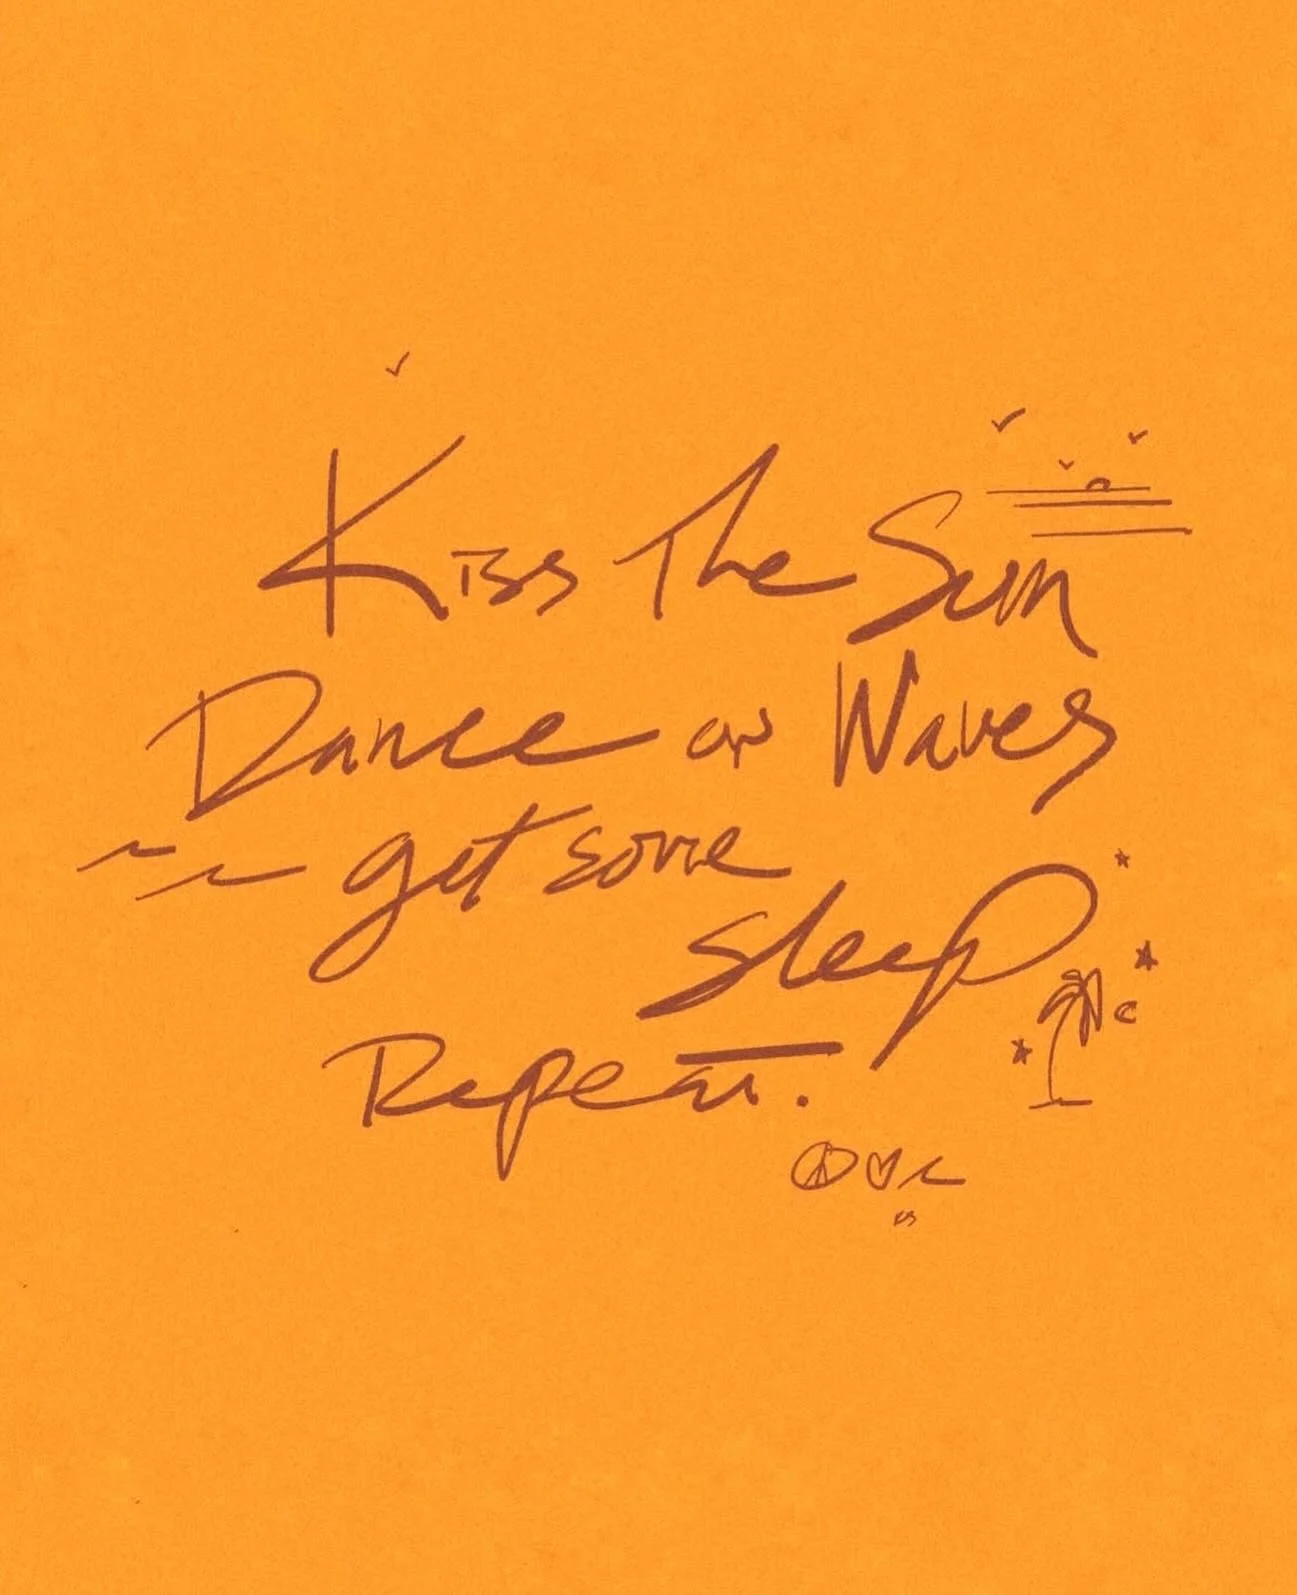 Kiss The Sun
Dance on Waves
get some
sleep
Repeat.